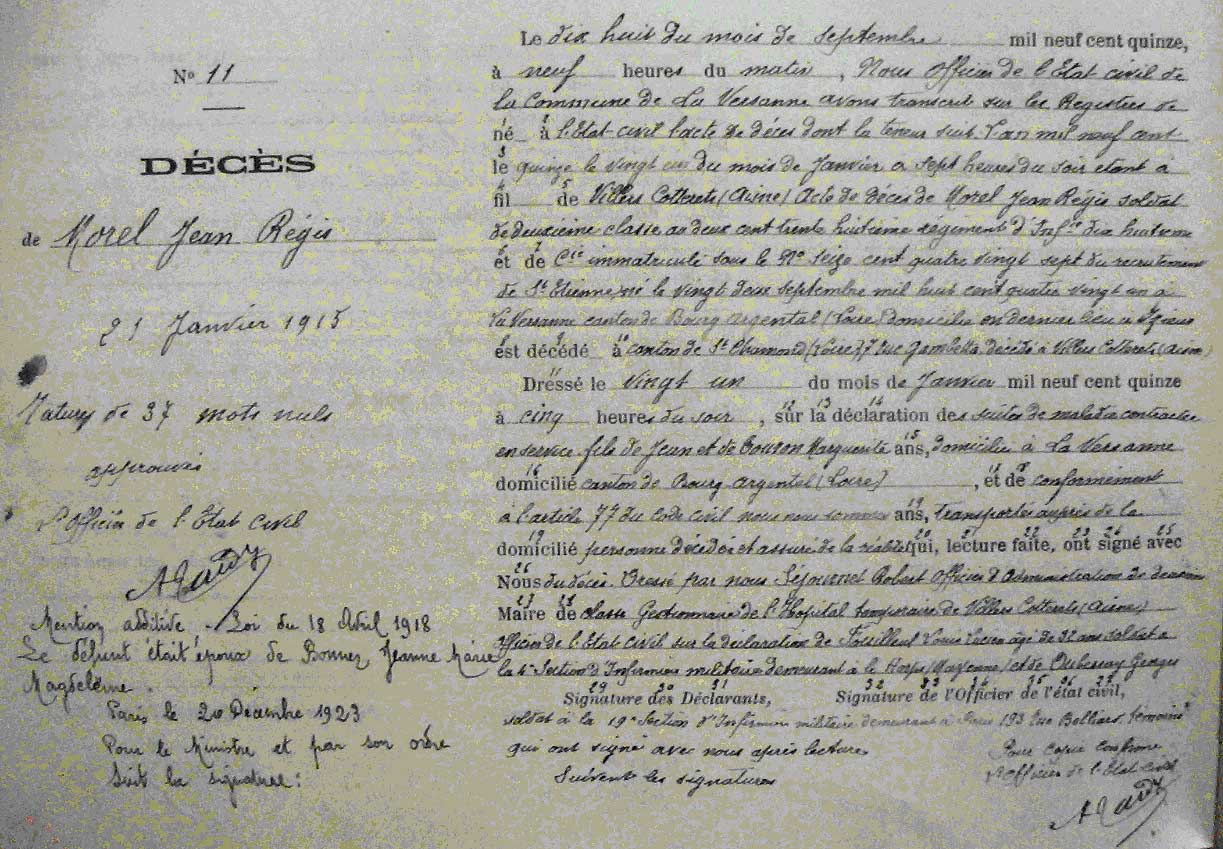 N° 11
DÉCÈS
de Morel Jean Régis
21 Janvier 1915
Ratures de 37 mots nuls
approuvés
L'Officier de l'Etat Civil
Mention additive - Loi du 18 Avril 1918
Le défunt était époux de Bonnez Jeanne Marie
Magdeleine.
Paris le 20 Décembre 1923
Pour le Ministre et par son ordre
Suit la signature:
Le dix huit du mois de septembre mil neuf cent quinze,
à neuf heures du matin, Nous Officier de l'Etat civil de
la Commune de La Versanne avons transcrit sur les Registres de
né 1 à 2 l'Etat-civil l'acte de décès dont la teneur suit. L'an mil neuf cent
le 3 quinze le vingt un du mois de Janvier a sept heures du soir étant à
fil 4 5 de Villers Cotterets (Aisne) Acte de décès de Morel Jean Régis soldat
de deuxième classe au deux cent trente huitième régiment d'Infie dix huitième
et 6 de 7 Cie immatriculé sous le No Seize cent quatre vingt sept du recrutement
de St Etienne, né le vingt deux septembre mil huit cent quatre vingt un à
La Versanne canton de Bourg Argental (Loire) domicilié en dernier lieu a Izieux
est 8 décédé 9 à 10 canton de St Chamond (Loire) 7 Rue Gambetta, décédé à Villers Cotterets (Aisne)
Dressé le 11 vingt un du mois de Janvier mil neuf cent quinze
à cinq heures du soir, 12 sur 13 la 14 déclaration des suites de maladie contractée
en service fils de Jean et de Marguerite 15 ans, domicilié à La Versanne
domicilié 16 canton de Bourg Argental (Loire), 17 et 18 de conformément
à l'article 77 du code civil nous nous sommes 19 ans, transportés auprès de la
domicilié 19 personne décédée et assuré de la réalité 20 qui, 21 lecture 22 faite, 23 ont 24 signé 25 avec
26 Nous du décès. Dressé par nous Séjournet Robert Officier d'Administration de deuxième
Maire 27 de 28 classe Gestionnaire de l'Hopital temporaire de Villers Cotterets (Aisne)
Officier de l'Etat Civil sur la déclaration de Louis Lucien âgé de 32 ans soldat a
la 4e Section d'Infirmiers militaires demeurant à (Mayenne) et de Georges
29 30 31 Signature des Déclarants, 32 33 34 35 36 37 Signature de l'Officier de l'état civil,
soldat à la 19e Section d'Infirmiers militaire demeurant à Paris 193 Rue Belliard, témoins
qui ont signé avec nous après lecture.
Suivent les signatures
Pour copie conforme
L'Officier de l'Etat Civil